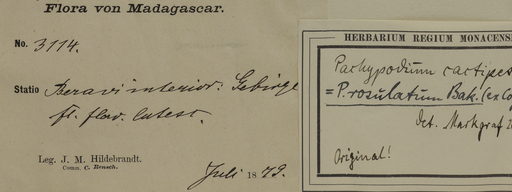 Flora von Madagascar.
No. 3114.
Statio Beravi interior: Gebirge
fl. flav. lutest.
Leg. J. M. Hildebrandt.
Comm. C. Rensch.
Juli 1879.
HERBARIUM REGIUM MONACENS
Pachypodium cactipes
= P. rosulatum Bak. (ex Co
det. Markgraf
Original!